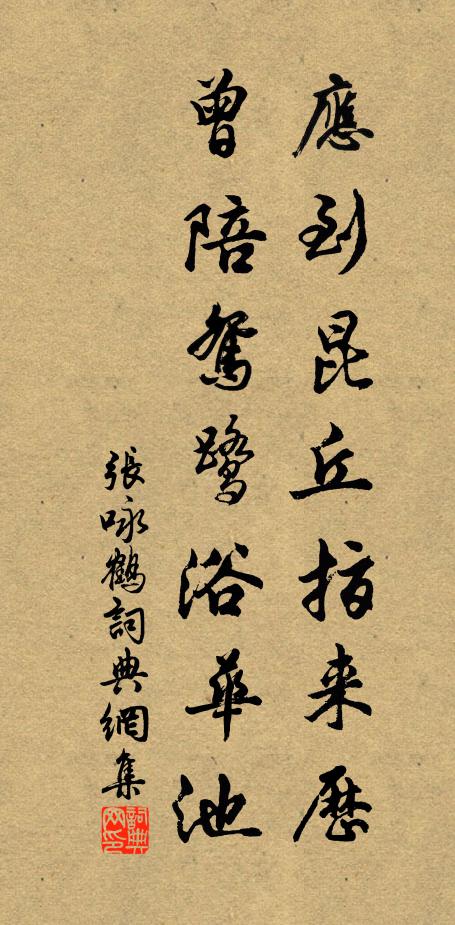 應到昆丘指来歷
曾陪鴛鷺浴華池
張咏鶴詞典網集
詞典网印